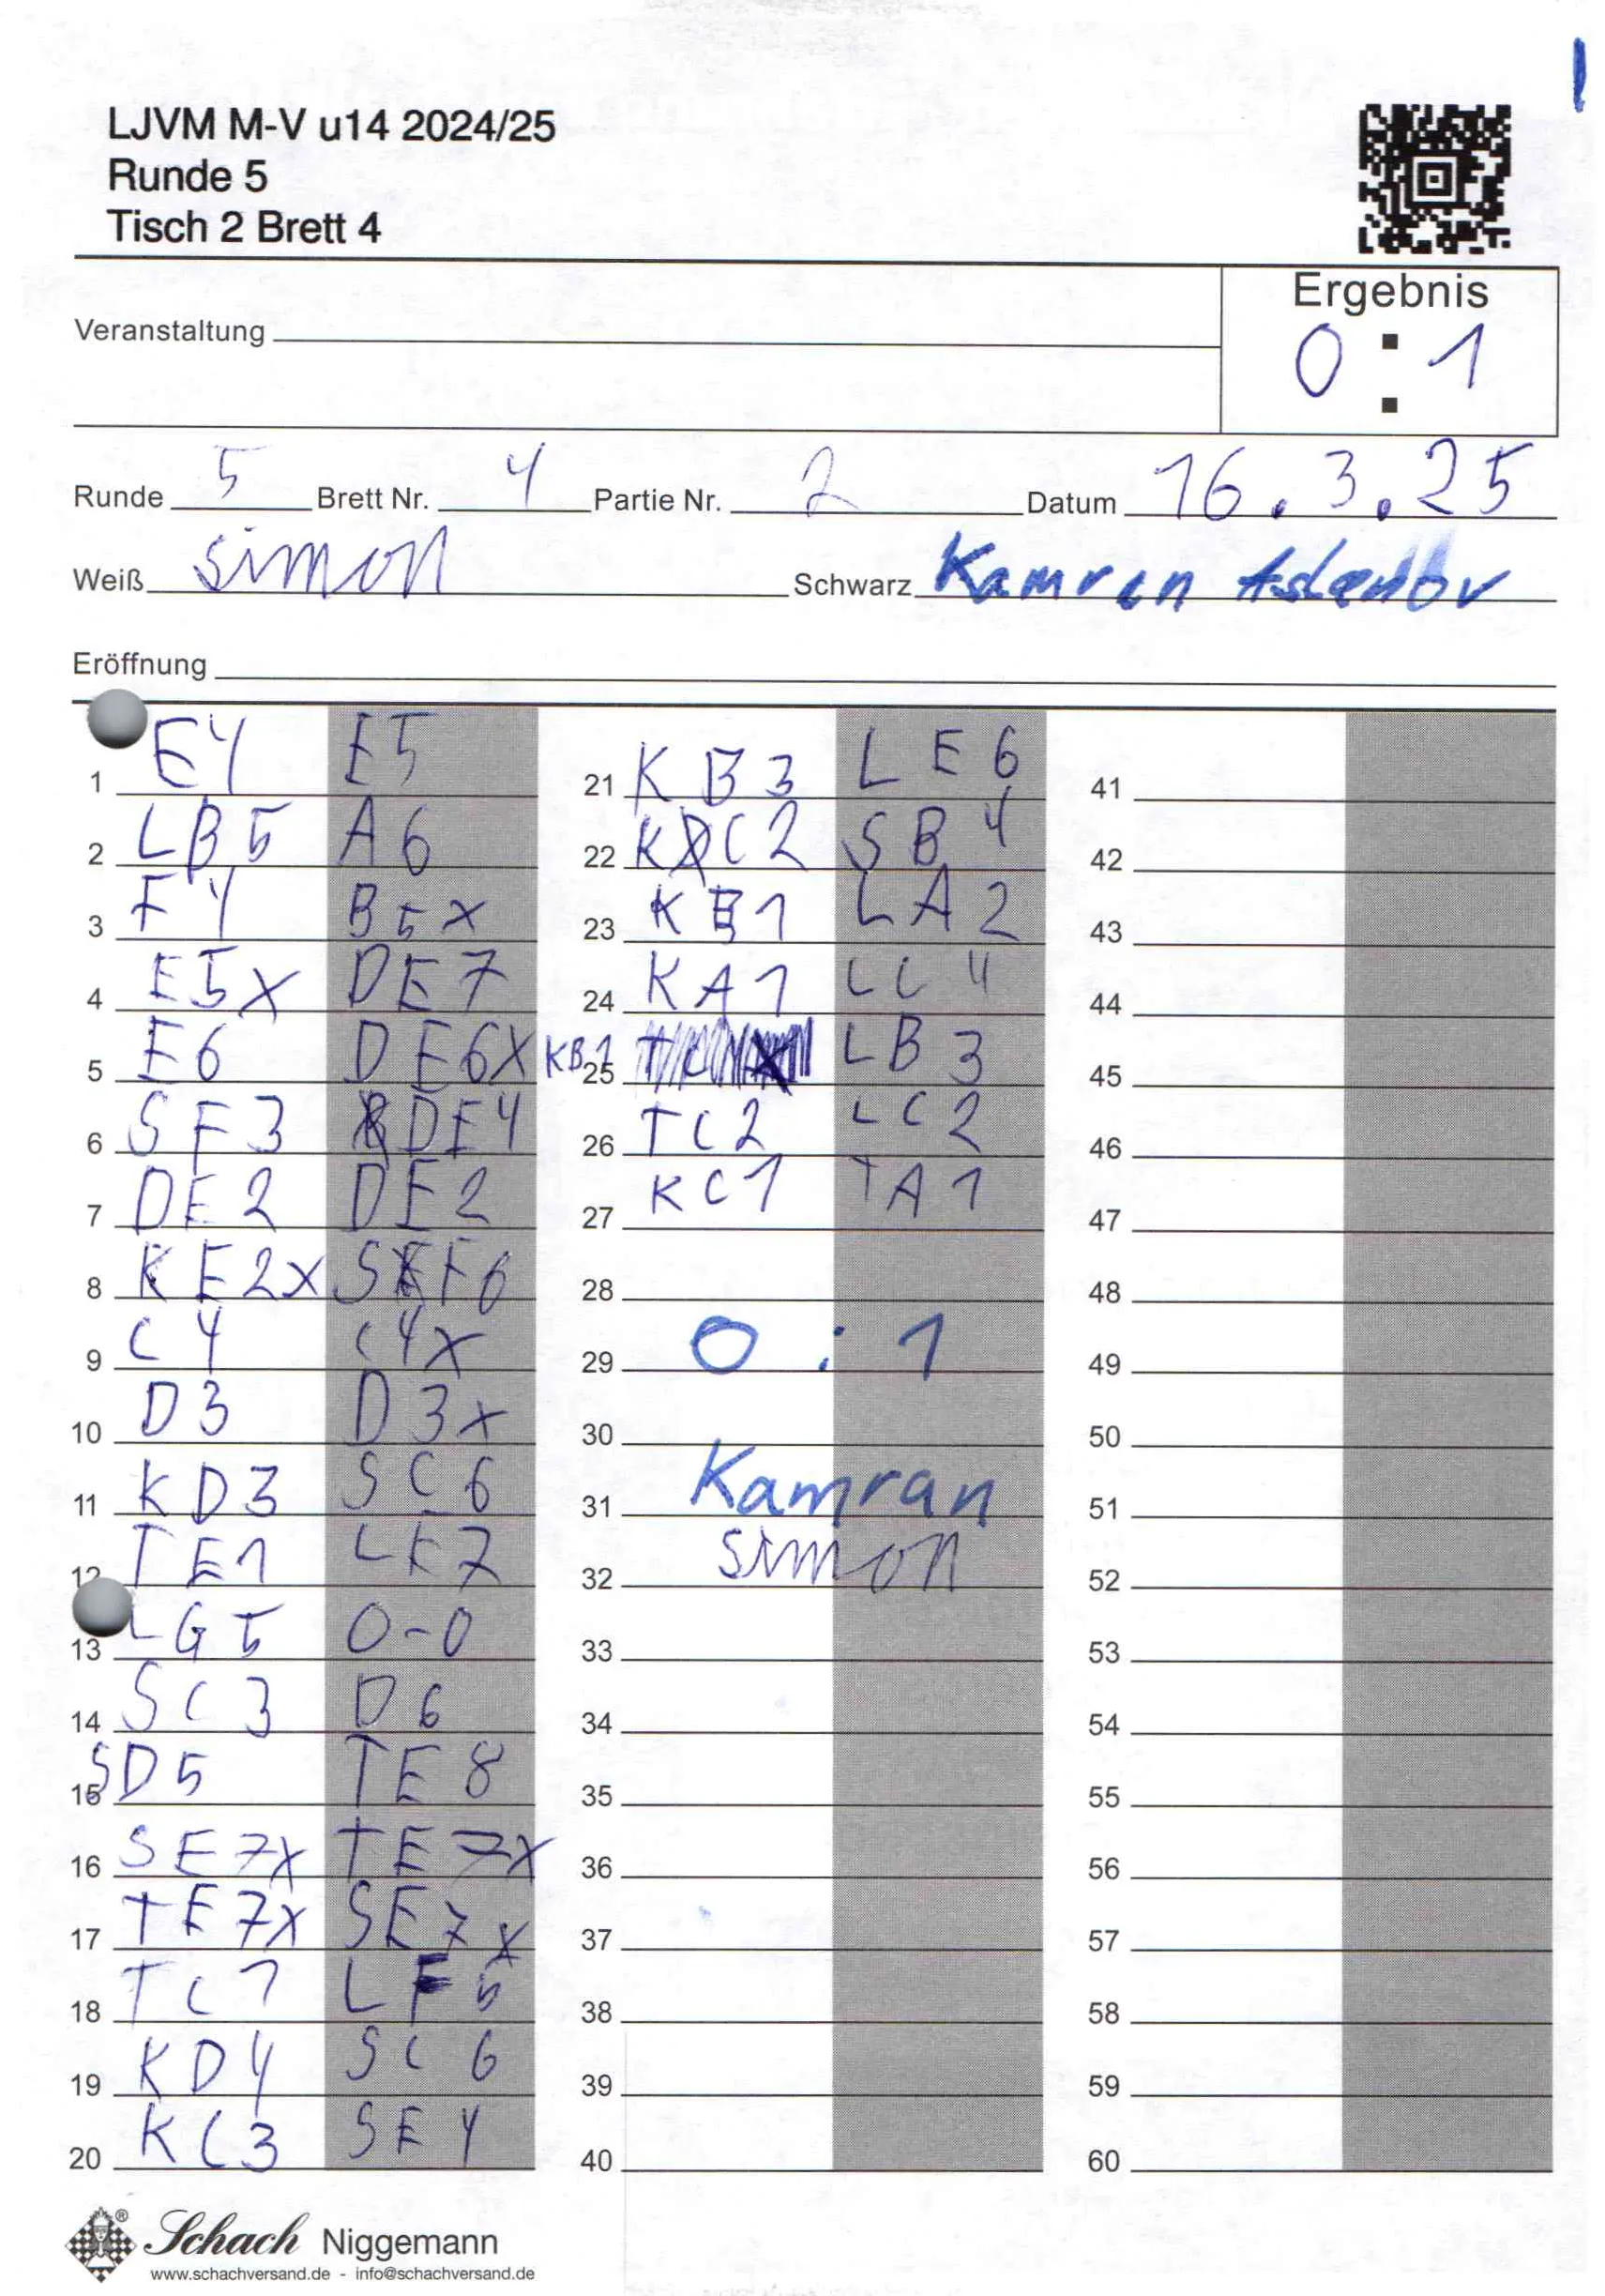 LJVM M-V u14 2024/25
Runde 5
Tisch 2 Brett 4
Ergebnis
0 : 1
Veranstaltung
Runde 5 Brett Nr. 4 Partie Nr. 2 Datum 16.3.25
Weiß simon Schwarz Kamran Aslanov
Eröffnung
1 E4 E5
2 LB5 A6
3 F4 B5x
4 E5x DE7
5 E6 DE6x
6 SF3 DE4
7 DE2 DE2
8 KE2x SF6
9 C4 C4x
10 D3 D3x
11 KD3 SC6
12 TE1 LE7
13 LG5 0-0
14 SC3 D6
15 SD5 TE8
16 SE7x TE7x
17 TE7x SE7x
18 TC1 LF5
19 KD4 SC6
20 KC3 SE4
21 KB3 LE6
22 KC2 SB4
23 KB1 LA2
24 KA1 LC4
25 KB1 LB3
26 TC2 LC2
27 KC1 TA1
28
29 0 : 1
30
31 Kamran
32 simon
33
34
35
36
37
38
39
40
41
42
43
44
45
46
47
48
49
50
51
52
53
54
55
56
57
58
59
60
Schach Niggemann
www.schachversand.de - info@schachversand.de